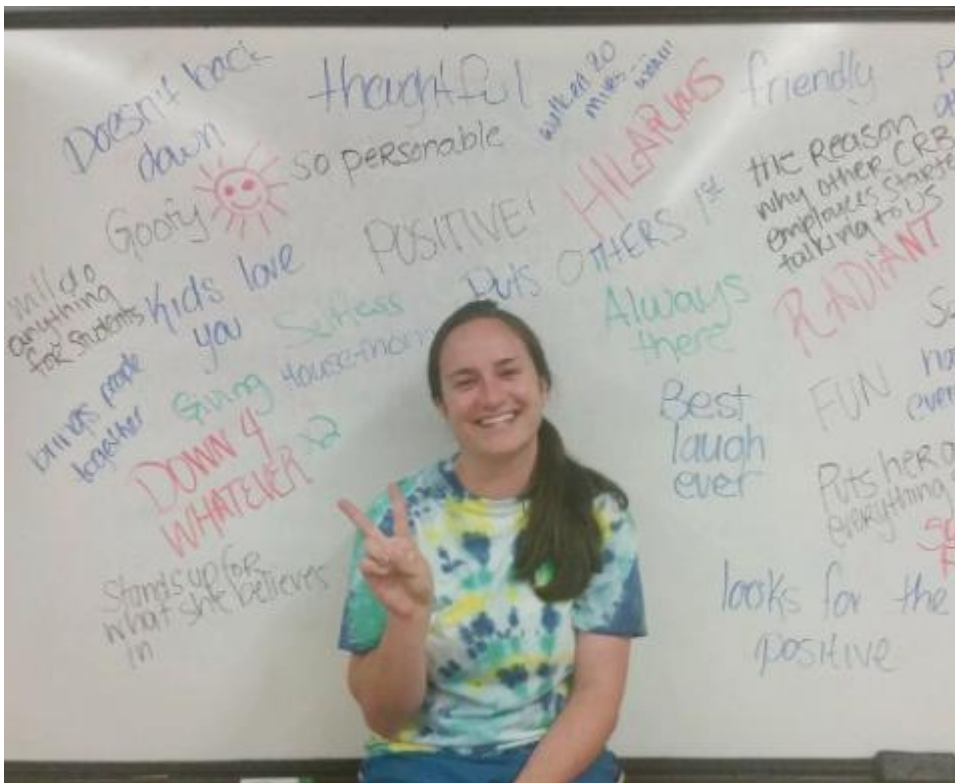 Doesn't back
down
thoughtful
walked 20
miles
friendly
so personable
HILARIOUS
the Reason
why other CRB
employees started
talking to us
Goofy
POSITIVE!
Puts OTHERS 1st
will do
anything
for students
Kids love
you
Selfless
Always
there
RADIANT
brings people
together
Giving
House-mom
FUN
DOWN 4
WHATEVER x2
Best
laugh
ever
Puts her
everything
Stands up for
what she believes
in
looks for the
positive